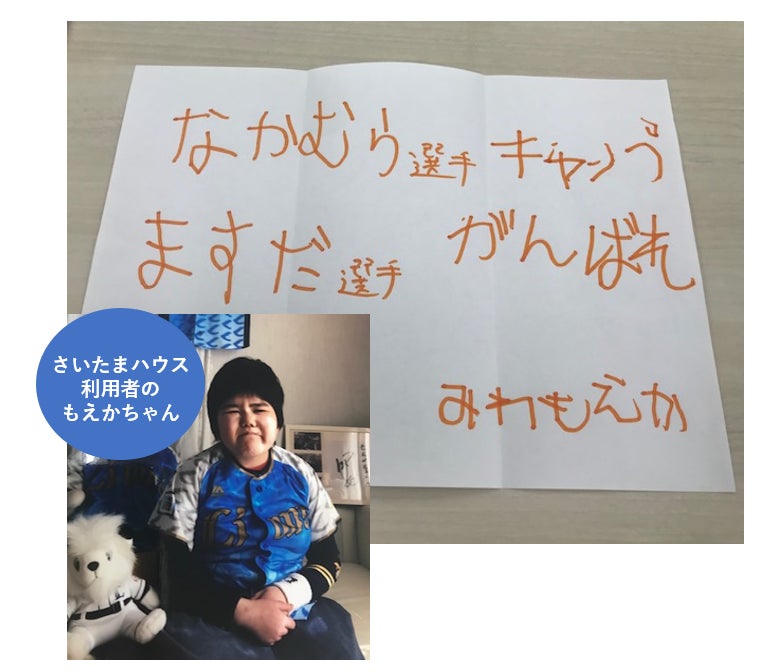 なかむら選手 キャンプ
ますだ選手 がんばれ
みわもえか
さいたまハウス
利用者の
もえかちゃん